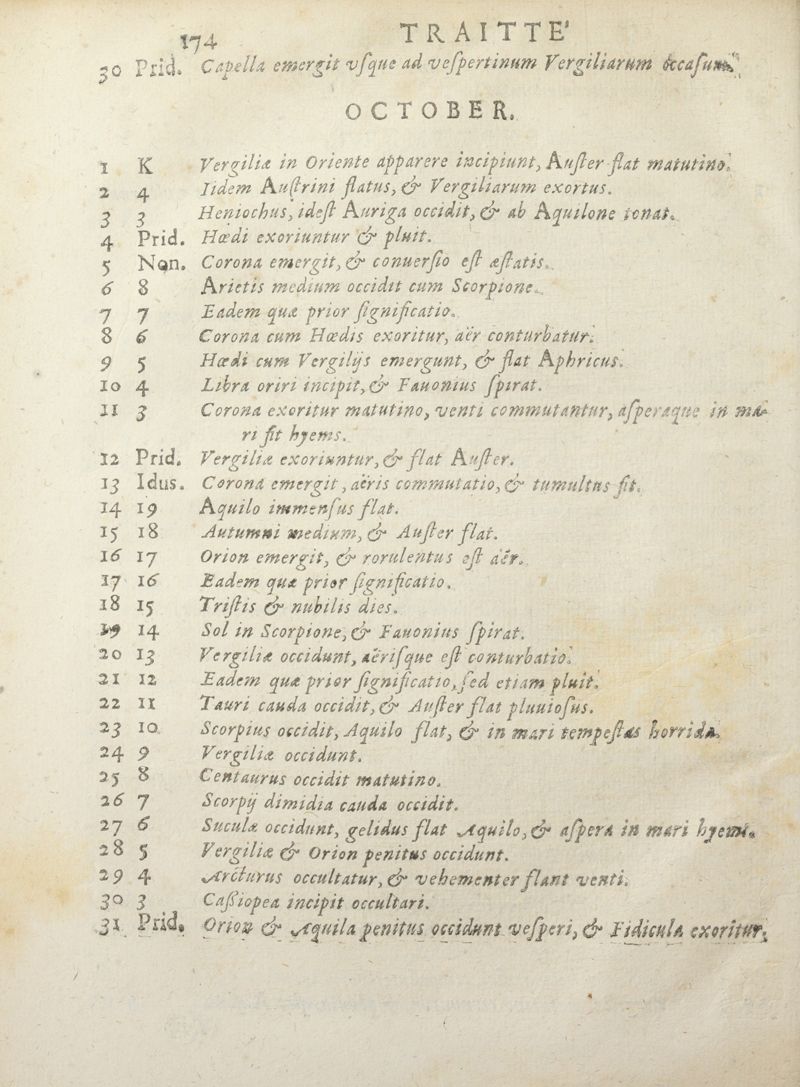 174 TRAITTE'
30 Prid. Capella emergit vſque ad veſpertinum Vergiliarum occaſum.
OCTOBER.
1 K Vergiliæ in Oriente apparere incipiunt, Auſter flat matutino.
2 4 Iidem Auſtrini flatus, & Vergiliarum exortus.
3 3 Heniochus, ideſt Auriga occidit, & ab Aquilone tonat.
4 Prid. Hœdi exoriuntur & pluit.
5 Non. Corona emergit, & conuerſio eſt æſtatis.
6 8 Arietis medium occidit cum Scorpione.
7 7 Eadem quæ prior ſignificatio.
8 6 Corona cum Hœdis exoritur, aër conturbatur.
9 5 Hœdi cum Vergilijs emergunt, & flat Aphricus.
10 4 Libra oriri incipit, & Fauonius ſpirat.
11 3 Corona exoritur matutino, venti commutantur, aſperaque in ma-
ri fit hyems.
12 Prid. Vergiliæ exoriuntur, & flat Auſter.
13 Idus. Corona emergit, aëris commutatio, & tumultus fit.
14 19 Aquilo immenſus flat.
15 18 Autumni medium, & Auſter flat.
16 17 Orion emergit, & rorulentus eſt aër.
17 16 Eadem quæ prior ſignificatio.
18 15 Triſtis & nubilis dies.
19 14 Sol in Scorpione, & Fauonius ſpirat.
20 13 Vergiliæ occidunt, aëriſque eſt conturbatio.
21 12 Eadem quæ prior ſignificatio, ſed etiam pluit.
22 11 Tauri cauda occidit, & Auſter flat pluuioſus.
23 10. Scorpius occidit, Aquilo flat, & in mari tempeſtas horrida.
24 9 Vergiliæ occidunt.
25 8 Centaurus occidit matutino.
26 7 Scorpij dimidia cauda occidit.
27 6 Suculæ occidunt, gelidus flat Aquilo, & aſpera in mari hyems.
28 5 Vergiliæ & Orion penitus occidunt.
29 4 Arcturus occultatur, & vehementer flant venti.
30 3 Caſſiopea incipit occultari.
31 Prid. Orion & Aquila penitus occidunt veſperi, & Fidicula exoritur.